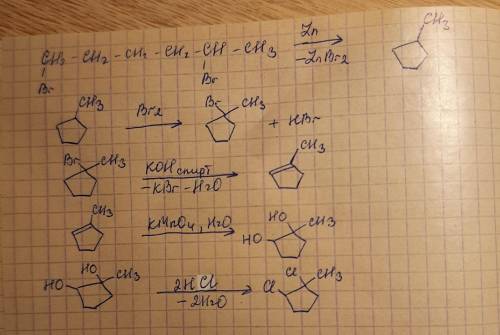 CH2 - CH2 - CH2 - CH2 - CH - CH3 Zn -ZnBr2 CH3
Br Br
CH3 Br2 Br CH3 + HBr
Br CH3 KOH спирт -KBr -H2O CH3
CH3 KMnO4, H2O HO CH3 HO
HO HO CH3 2HCl -2H2O Cl Cl CH3